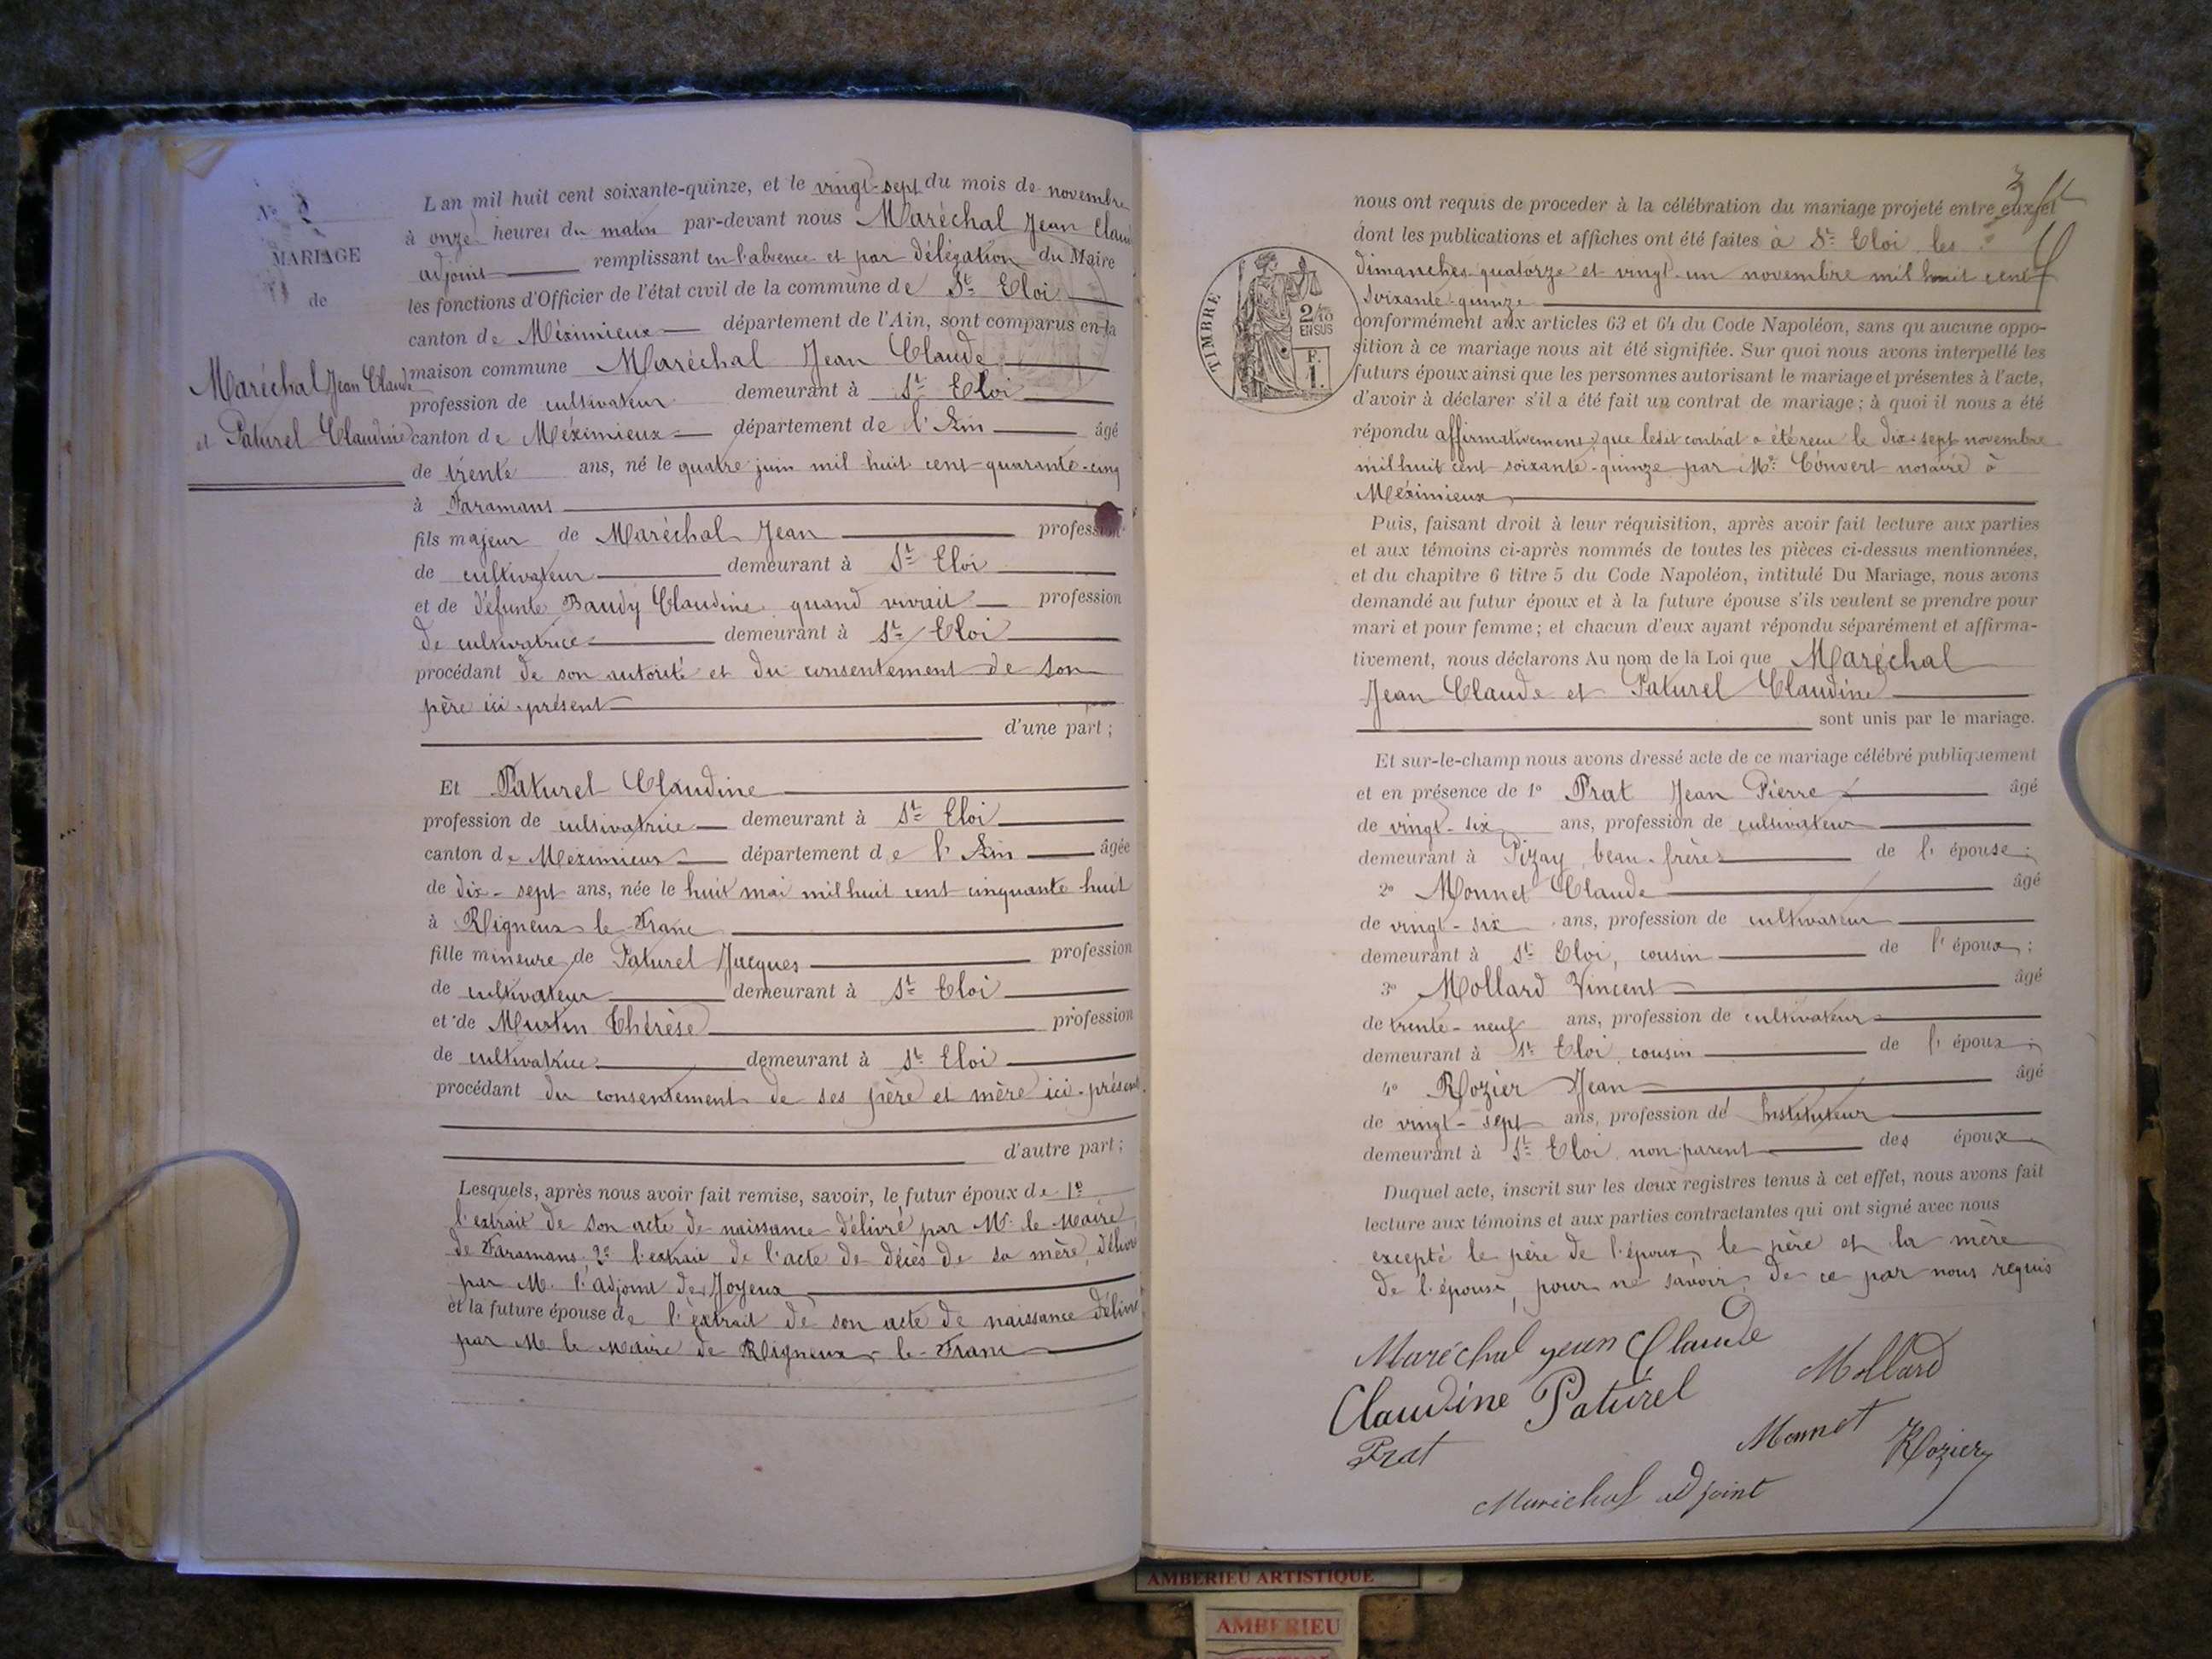 No
MARIAGE
de
Maréchal Jean Claude
et Paturel Claudine
L'an mil huit cent soixante-quinze, et le vingt-sept du mois de novembre
à onze heures du matin par-devant nous Maréchal Jean Claude
adjoint remplissant en l'absence et par délégation du Maire
les fonctions d'Officier de l'état civil de la commune de St Eloi
canton de Méximieux département de l'Ain, sont comparus en la
maison commune Maréchal Jean Claude
profession de cultivateur demeurant à St Eloi
canton de Méximieux département de l'Ain âgé
de trente ans, né le quatre juin mil huit cent quarante-cinq
à Faramans
fils majeur de Maréchal Jean profession
de cultivateur demeurant à St Eloi
et de défunte Baudy Claudine quand vivait profession
de cultivatrice demeurant à St Eloi
procédant de son autorité et du consentement de son
père ici-présent
d'une part;
Et Paturel Claudine
profession de cultivatrice demeurant à St Eloi
canton de Méximieux département de l'Ain âgée
de dix-sept ans, née le huit mai mil huit cent cinquante huit
à Rigneux le Franc
fille mineure de Paturel Jacques profession
de cultivateur demeurant à St Eloi
et de Martin Thérèse profession
de cultivatrice demeurant à St Eloi
procédant du consentement de ses père et mère ici-présents
d'autre part;
Lesquels, après nous avoir fait remise, savoir, le futur époux de 1o
l'extrait de son acte de naissance délivré par Mr le Maire
de Faramans; 2o l'extrait de l'acte de décès de sa mère, délivré
par M. l'adjoint de Joyeux
et la future épouse de l'extrait de son acte de naissance délivré
par M. le Maire de Rigneux-le-Franc
3
nous ont requis de procéder à la célébration du mariage projeté entre eux et
dont les publications et affiches ont été faites à St Eloi les
dimanches quatorze et vingt-un novembre mil huit cent
soixante-quinze
TIMBRE
2/10
EN SUS
F.
1.
conformément aux articles 63 et 64 du Code Napoléon, sans qu'aucune oppo-
sition à ce mariage nous ait été signifiée. Sur quoi nous avons interpellé les
futurs époux ainsi que les personnes autorisant le mariage et présentes à l'acte,
d'avoir à déclarer s'il a été fait un contrat de mariage; à quoi il nous a été
répondu affirmativement, que ledit contrat a été reçu le dix-sept novembre
mil huit cent soixante-quinze par Me Convert notaire à
Méximieux
Puis, faisant droit à leur réquisition, après avoir fait lecture aux parties
et aux témoins ci-après nommés de toutes les pièces ci-dessus mentionnées,
et du chapitre 6 titre 5 du Code Napoléon, intitulé Du Mariage, nous avons
demandé au futur époux et à la future épouse s'ils veulent se prendre pour
mari et pour femme; et chacun d'eux ayant répondu séparément et affirma-
tivement, nous déclarons Au nom de la Loi que Maréchal
Jean Claude et Paturel Claudine
sont unis par le mariage.
Et sur-le-champ nous avons dressé acte de ce mariage célébré publiquement
et en présence de 1o Prat Jean Pierre âgé
de vingt-six ans, profession de cultivateur
demeurant à Pizay beau-frère de l'épouse;
2o Monnet Claude âgé
de vingt-six ans, profession de cultivateur
demeurant à St Eloi, cousin de l'époux;
3o Mollard Vincent âgé
de trente-neuf ans, profession de cultivateur
demeurant à St Eloi cousin de l'époux;
4o Rozier Jean âgé
de vingt-sept ans, profession de Instituteur
demeurant à St Eloi non-parent des époux
Duquel acte, inscrit sur les deux registres tenus à cet effet, nous avons fait
lecture aux témoins et aux parties contractantes qui ont signé avec nous
excepté le père de l'époux, le père et la mère
de l'épouse, pour ne savoir, de ce par nous requis
Maréchal jean Claude
Mollard
Claudine Paturel
Monnet
Prat
Rozier
Maréchal adjoint
AMBERIEU ARTISTIQUE
AMBERIEU